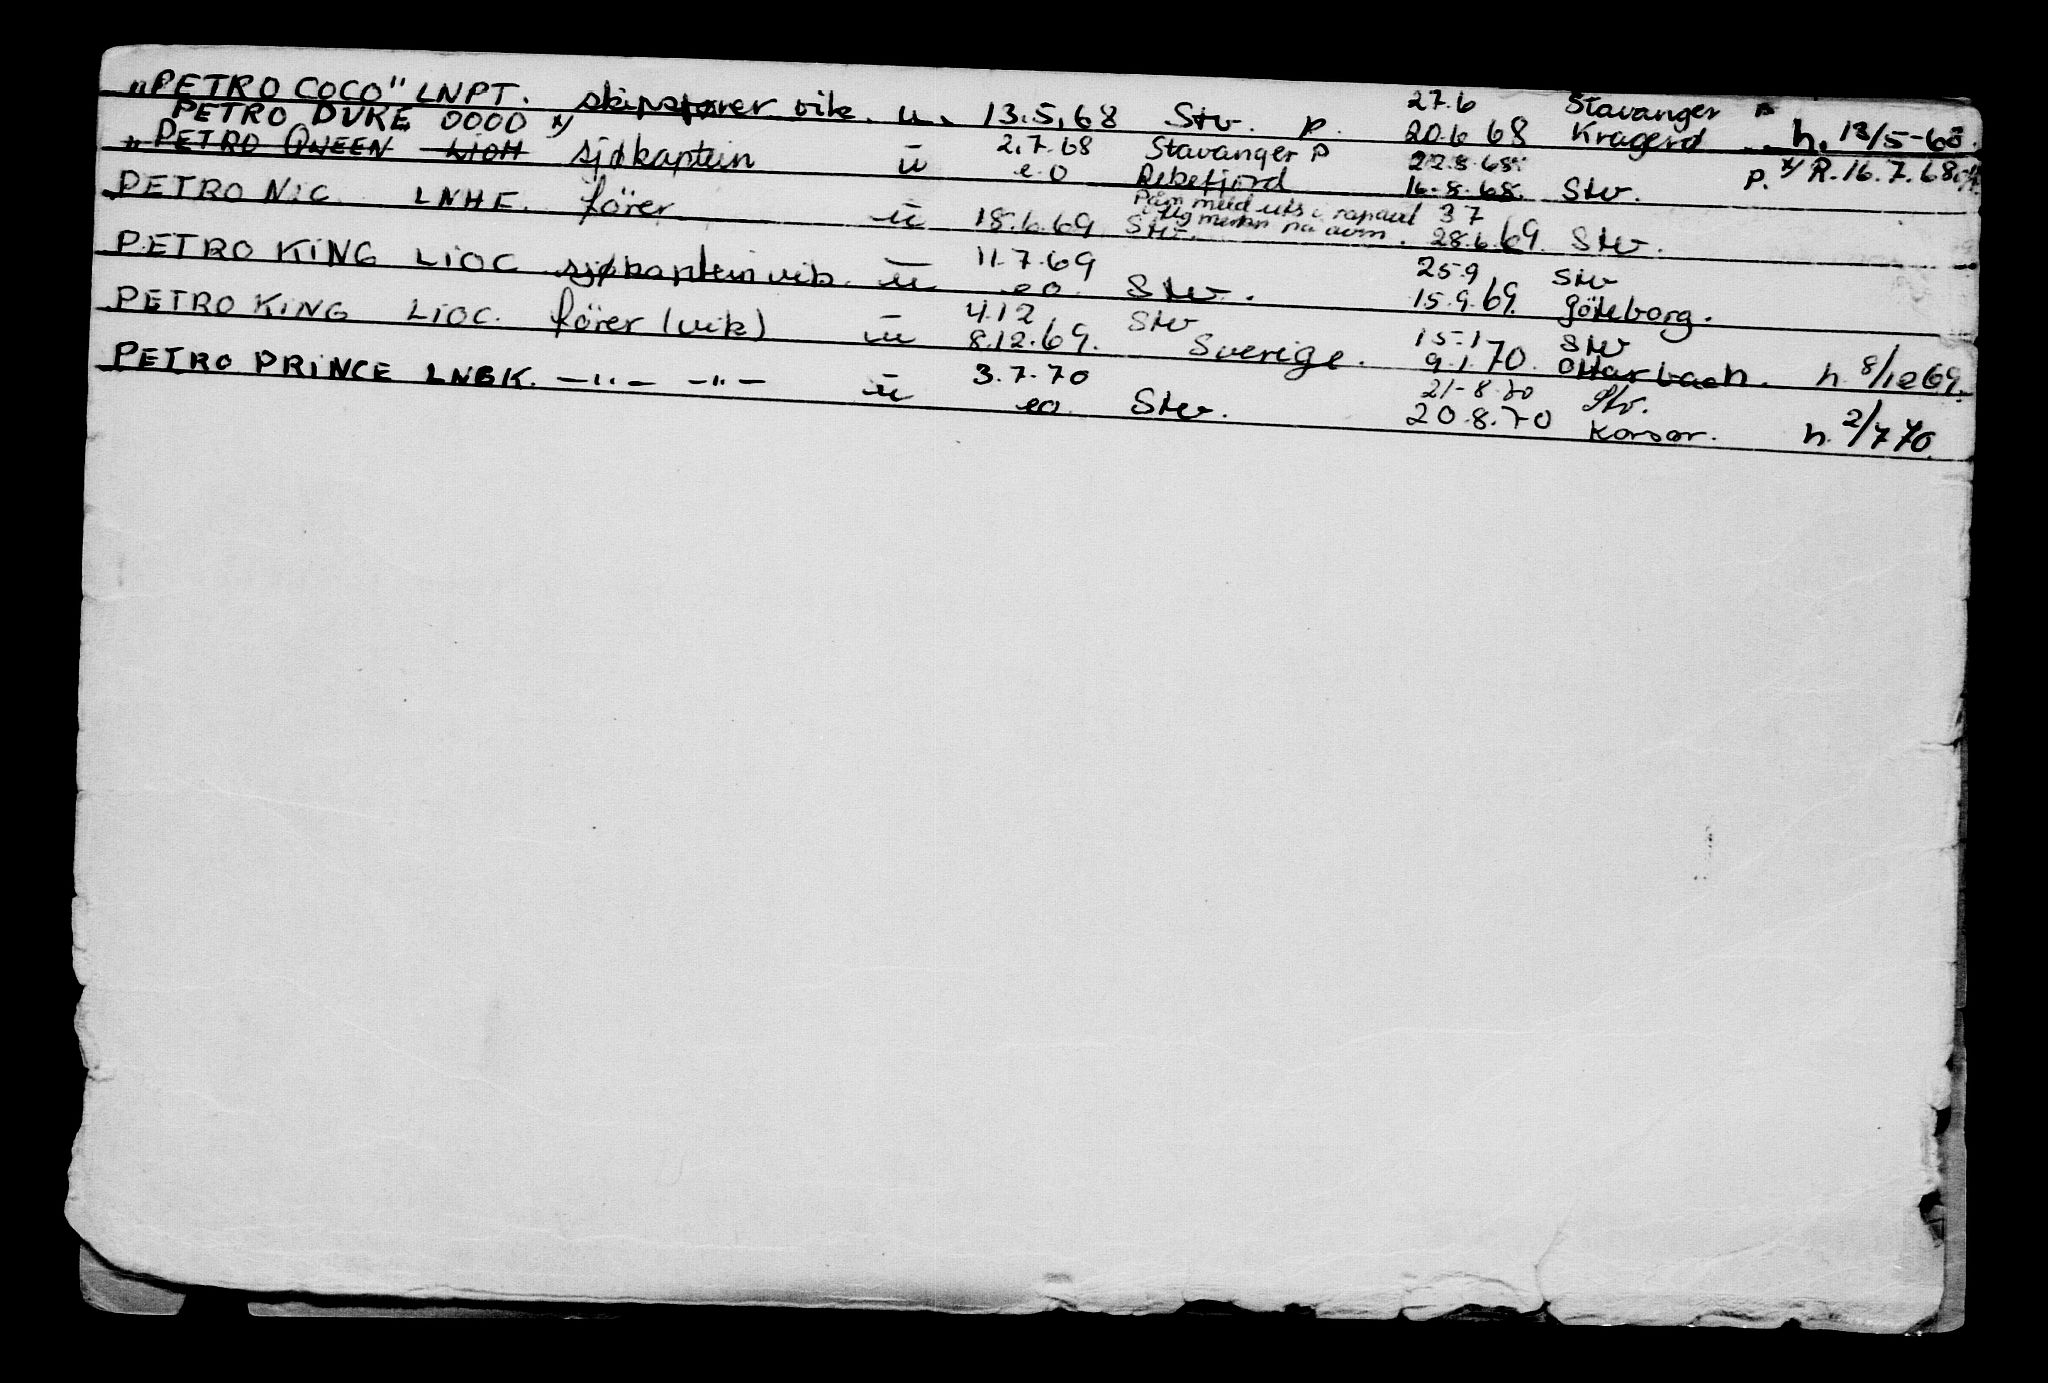 „PETRO COCO" LNPT. skipsfører vik. u. 13.5.68 Stv. p. 27.6 20.6 68 Stavanger p Kragerø h. 13/5-68.
PETRO DUKE 0000 x/
„PETRO QUEEN LIOH sjøkaptein u 2.7.68 e.o Stavanger p Rekefjord 22.8.68. 16.8.68. Stv. p. x/ R.16.7.68
PETRO NIC. LNHE. förer u 18.6.69 Stv. 3 7 28.6.69. Stv.
PETRO KING LIOC sjøkaptein vik. u 11.7.69 eo Stv. 25.9 15.9.69. Stv Göteborg.
PETRO KING LIOC. förer (vik) u 4.12 8.12.69. Stv Sverige. 15.1 9.1.70. Stv h. 8/12 69.
PETRO PRINCE LNBK. —"— —"— u 3.7.70 eo. Stv. 21-8.70 20.8.70 Stv. Korsør. h. 2/7 70.